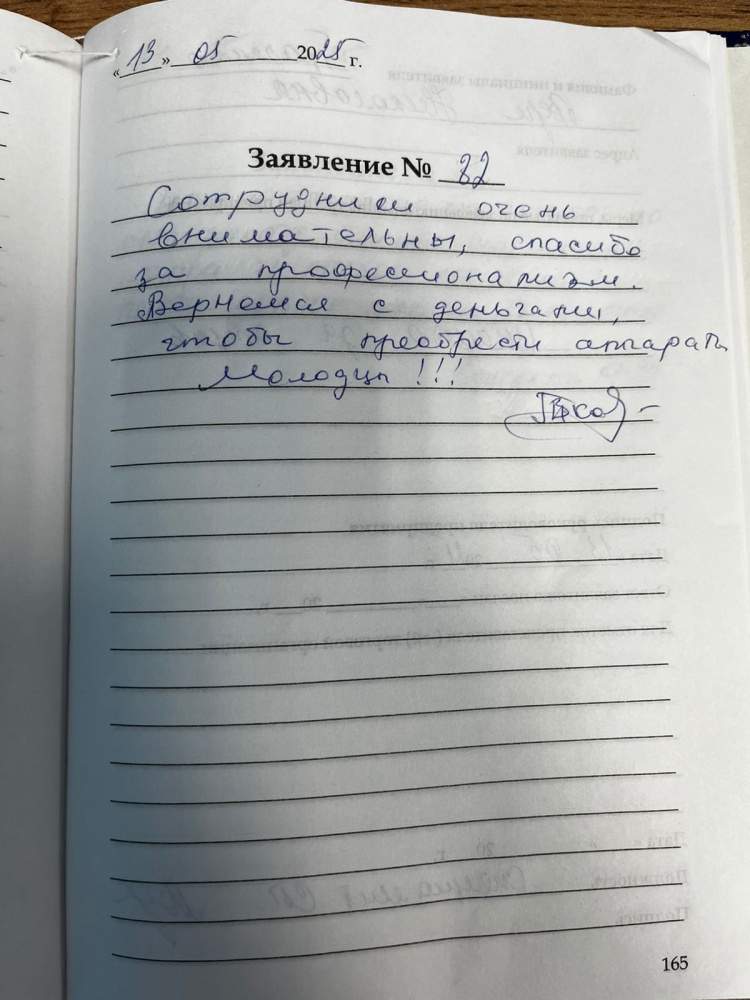 «13» 05 2025 г.
Заявление № 82
Сотрудники очень
внимательны, спасибо
за профессионализм.
Вернемся с деньгами,
чтобы преобрести аппараты
Молодцы!!!
165